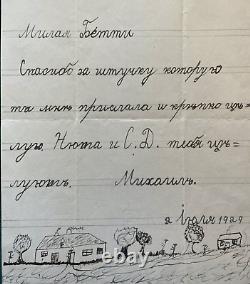 Милая Бетти
Спасибо за штучку которую
ты мнѣ прислала и крѣпко цѣ-
лую. Нюта и С.Д. тебя цѣ-
луютъ. Михаилъ.
1929